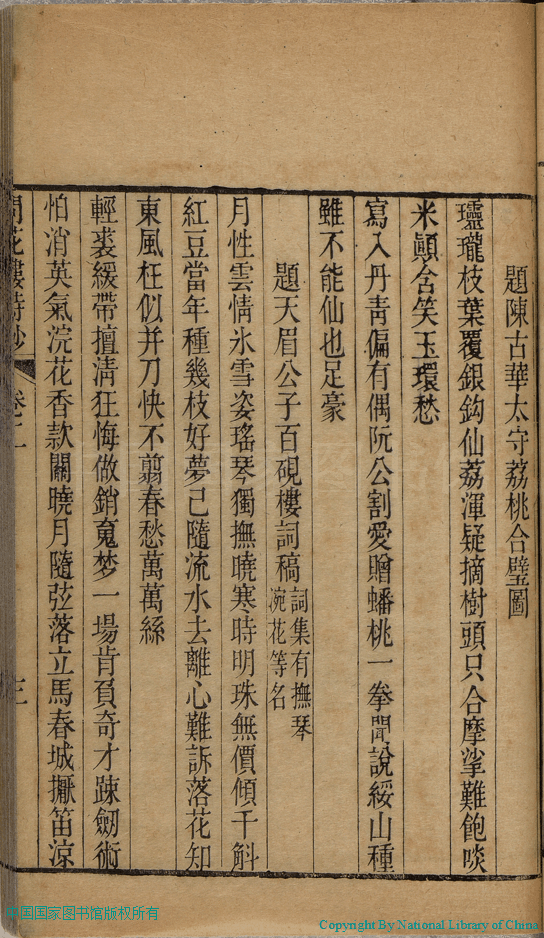 題陳古華太守荔桃合璧圖
瓏枝葉覆銀鈎仙荔渾疑摘樹頭只合摩挲難飽啖
米顚含笑玉環愁
寫入丹靑偏有偶阮公割愛贈蟠桃一拳聞說綏山種
雖不能仙也足豪
題天眉公子百硯樓詞稿詞集有撫琴
浣花等名
月性雲情氷雪姿瑤琴獨撫曉寒時明珠無價傾千斛
紅豆當年種幾枝好夢已隨流水去離心難訴落花知
東風枉似并刀快不翦春愁萬萬絲
輕裘緩帶擅淸狂悔做銷䰟梦一場肯負奇才踈劒術
怕消英氣浣花香款關曉月隨弦落立馬春城擫笛涼
花樓詩鈔 卷二 三
中国国家图书馆版权所有
Copyright By National Library of China